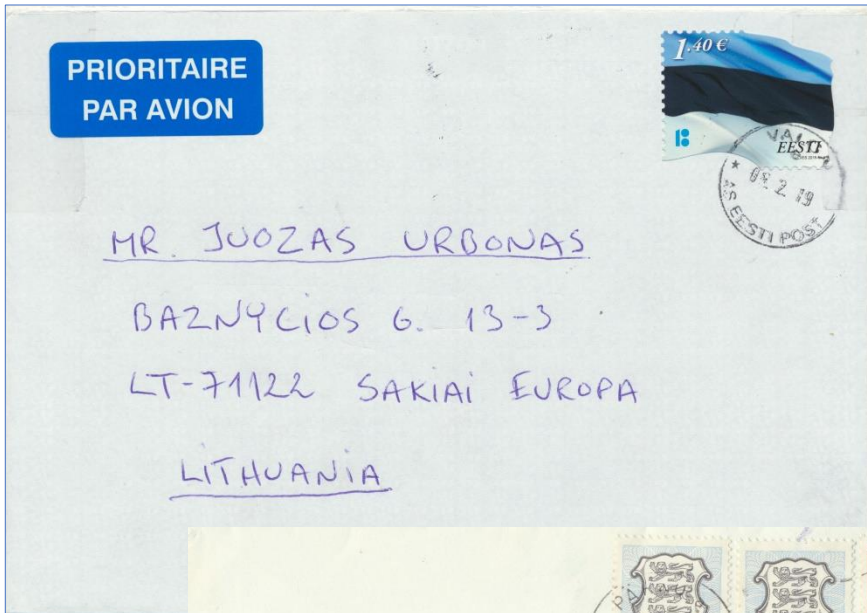 PRIORITAIRE
PAR AVION
1.40 €
EESTI
AS EESTI POST
MR. JUOZAS URBONAS
BAZNYCIOS G. 13-3
LT-71122 SAKIAI EUROPA
LITHUANIA